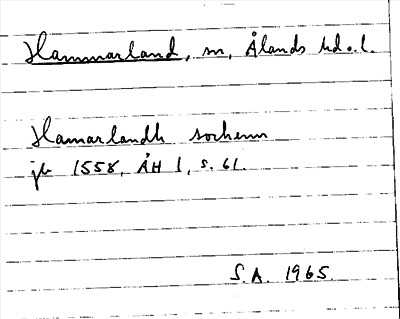 Hammarland, sn, Ålands hd o. l.
Hamarlandh sochenn
jb 1558, ÅH 1, s. 61.
S.A. 1965.